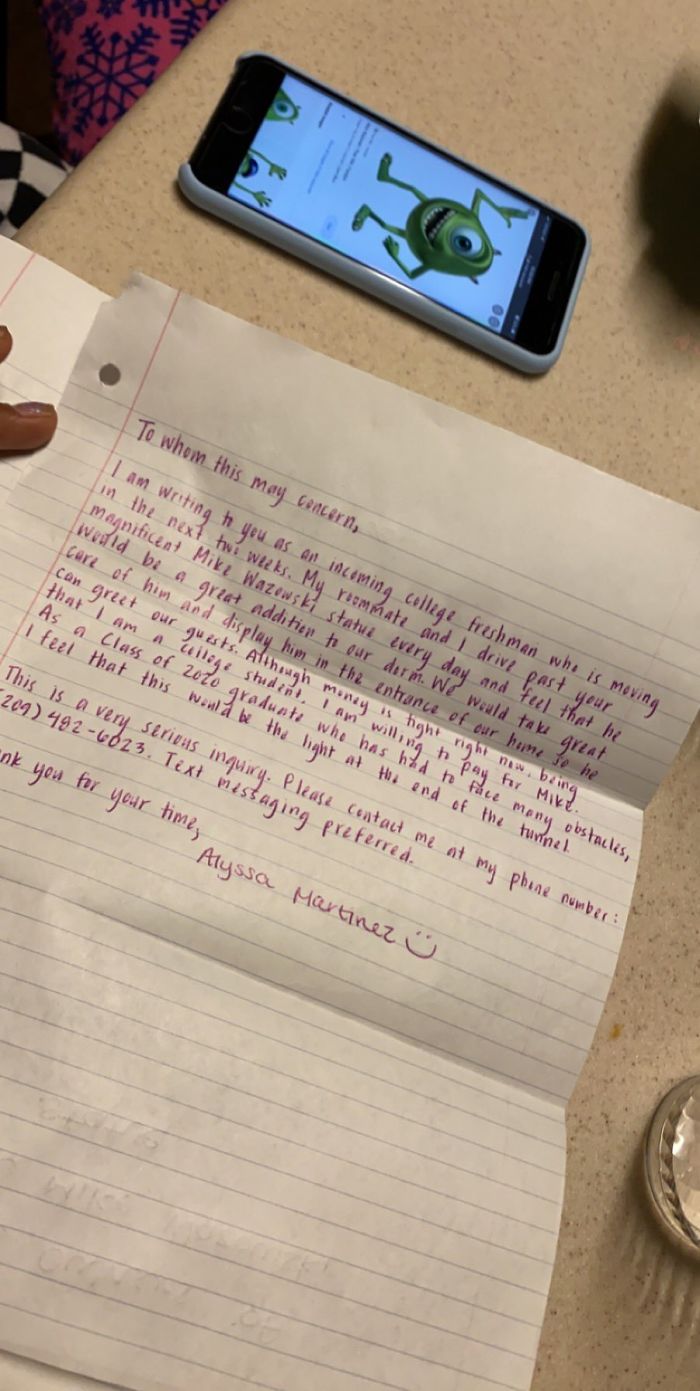 To whom this may concern,
I am writing to you as an incoming college freshman who is moving
in the next two weeks. My roommate and I drive past your
magnificent Mike Wazowski statue every day and feel that he
would be a great addition to our dorm. We would take great
care of him and display him in the entrance of our home so he
can greet our guests. Although money is tight right now, being
that I am a college student, I am willing to pay for Mike.
As a Class of 2020 graduate who has had to face many obstacles,
I feel that this would be the light at the end of the tunnel.
This is a very serious inquiry. Please contact me at my phone number:
(209) 482-6023. Text messaging preferred.
nk you for your time,
Alyssa Martinez